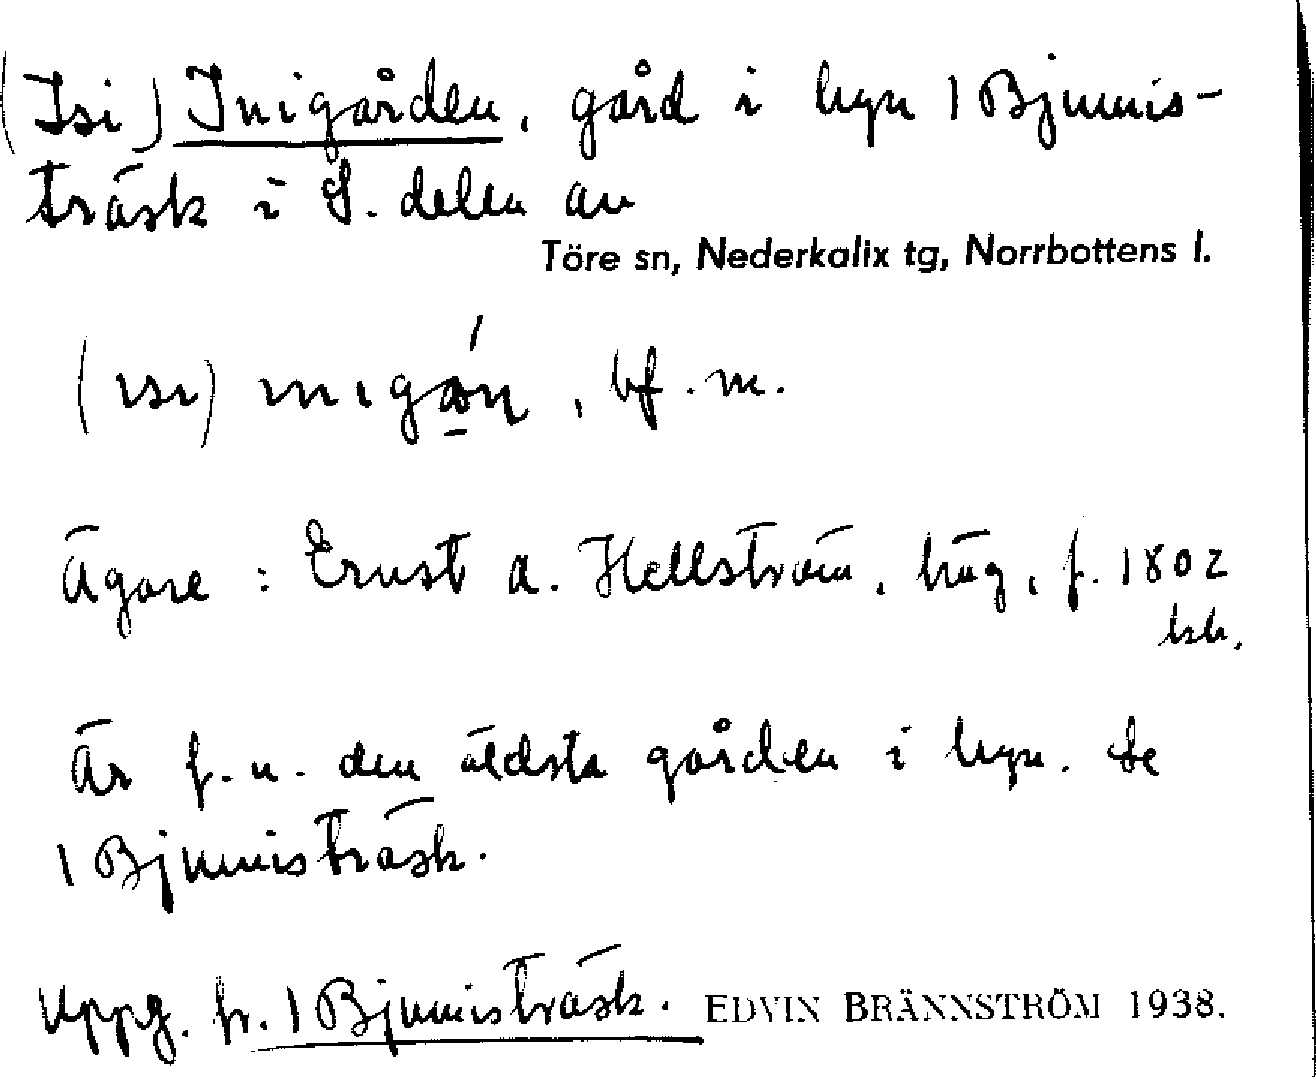 (Isi) Inigården, gård i byn 1 Bjumis-
träsk i S. delen av
Töre sn, Nederkalix tg, Norrbottens l.
(ısı) ınıgån, bf. m.
Ägare: Ernst A. Hellström, bég, f. 1802
Är f.n. den äldsta gården i byn. Se
1 Bjumisträsk.
Uppg. fr. 1 Bjumisträsk. EDVIN BRÄNNSTRÖM 1938.